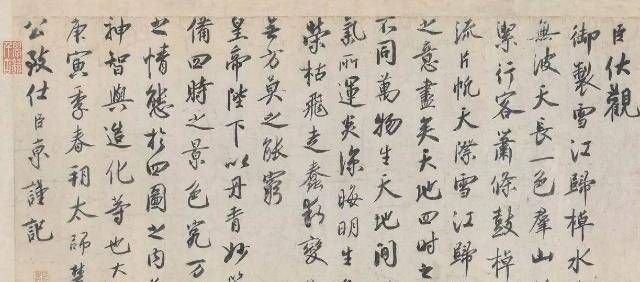 臣伏觀
御製雪江歸棹水
無波天長一色群山
潔行客蕭條鼓棹
流片帆天際雪江歸
之意盡矣天地四時之
不同萬物生天地間
氣所運炎涼晦明生
榮枯飛走蠢動變
無方莫之能窮
皇帝陛下以丹青妙
備四時之景色究万
之情態於四圖之内
神智與造化等也大
庚寅季春朔太師楚
公致仕臣京謹記